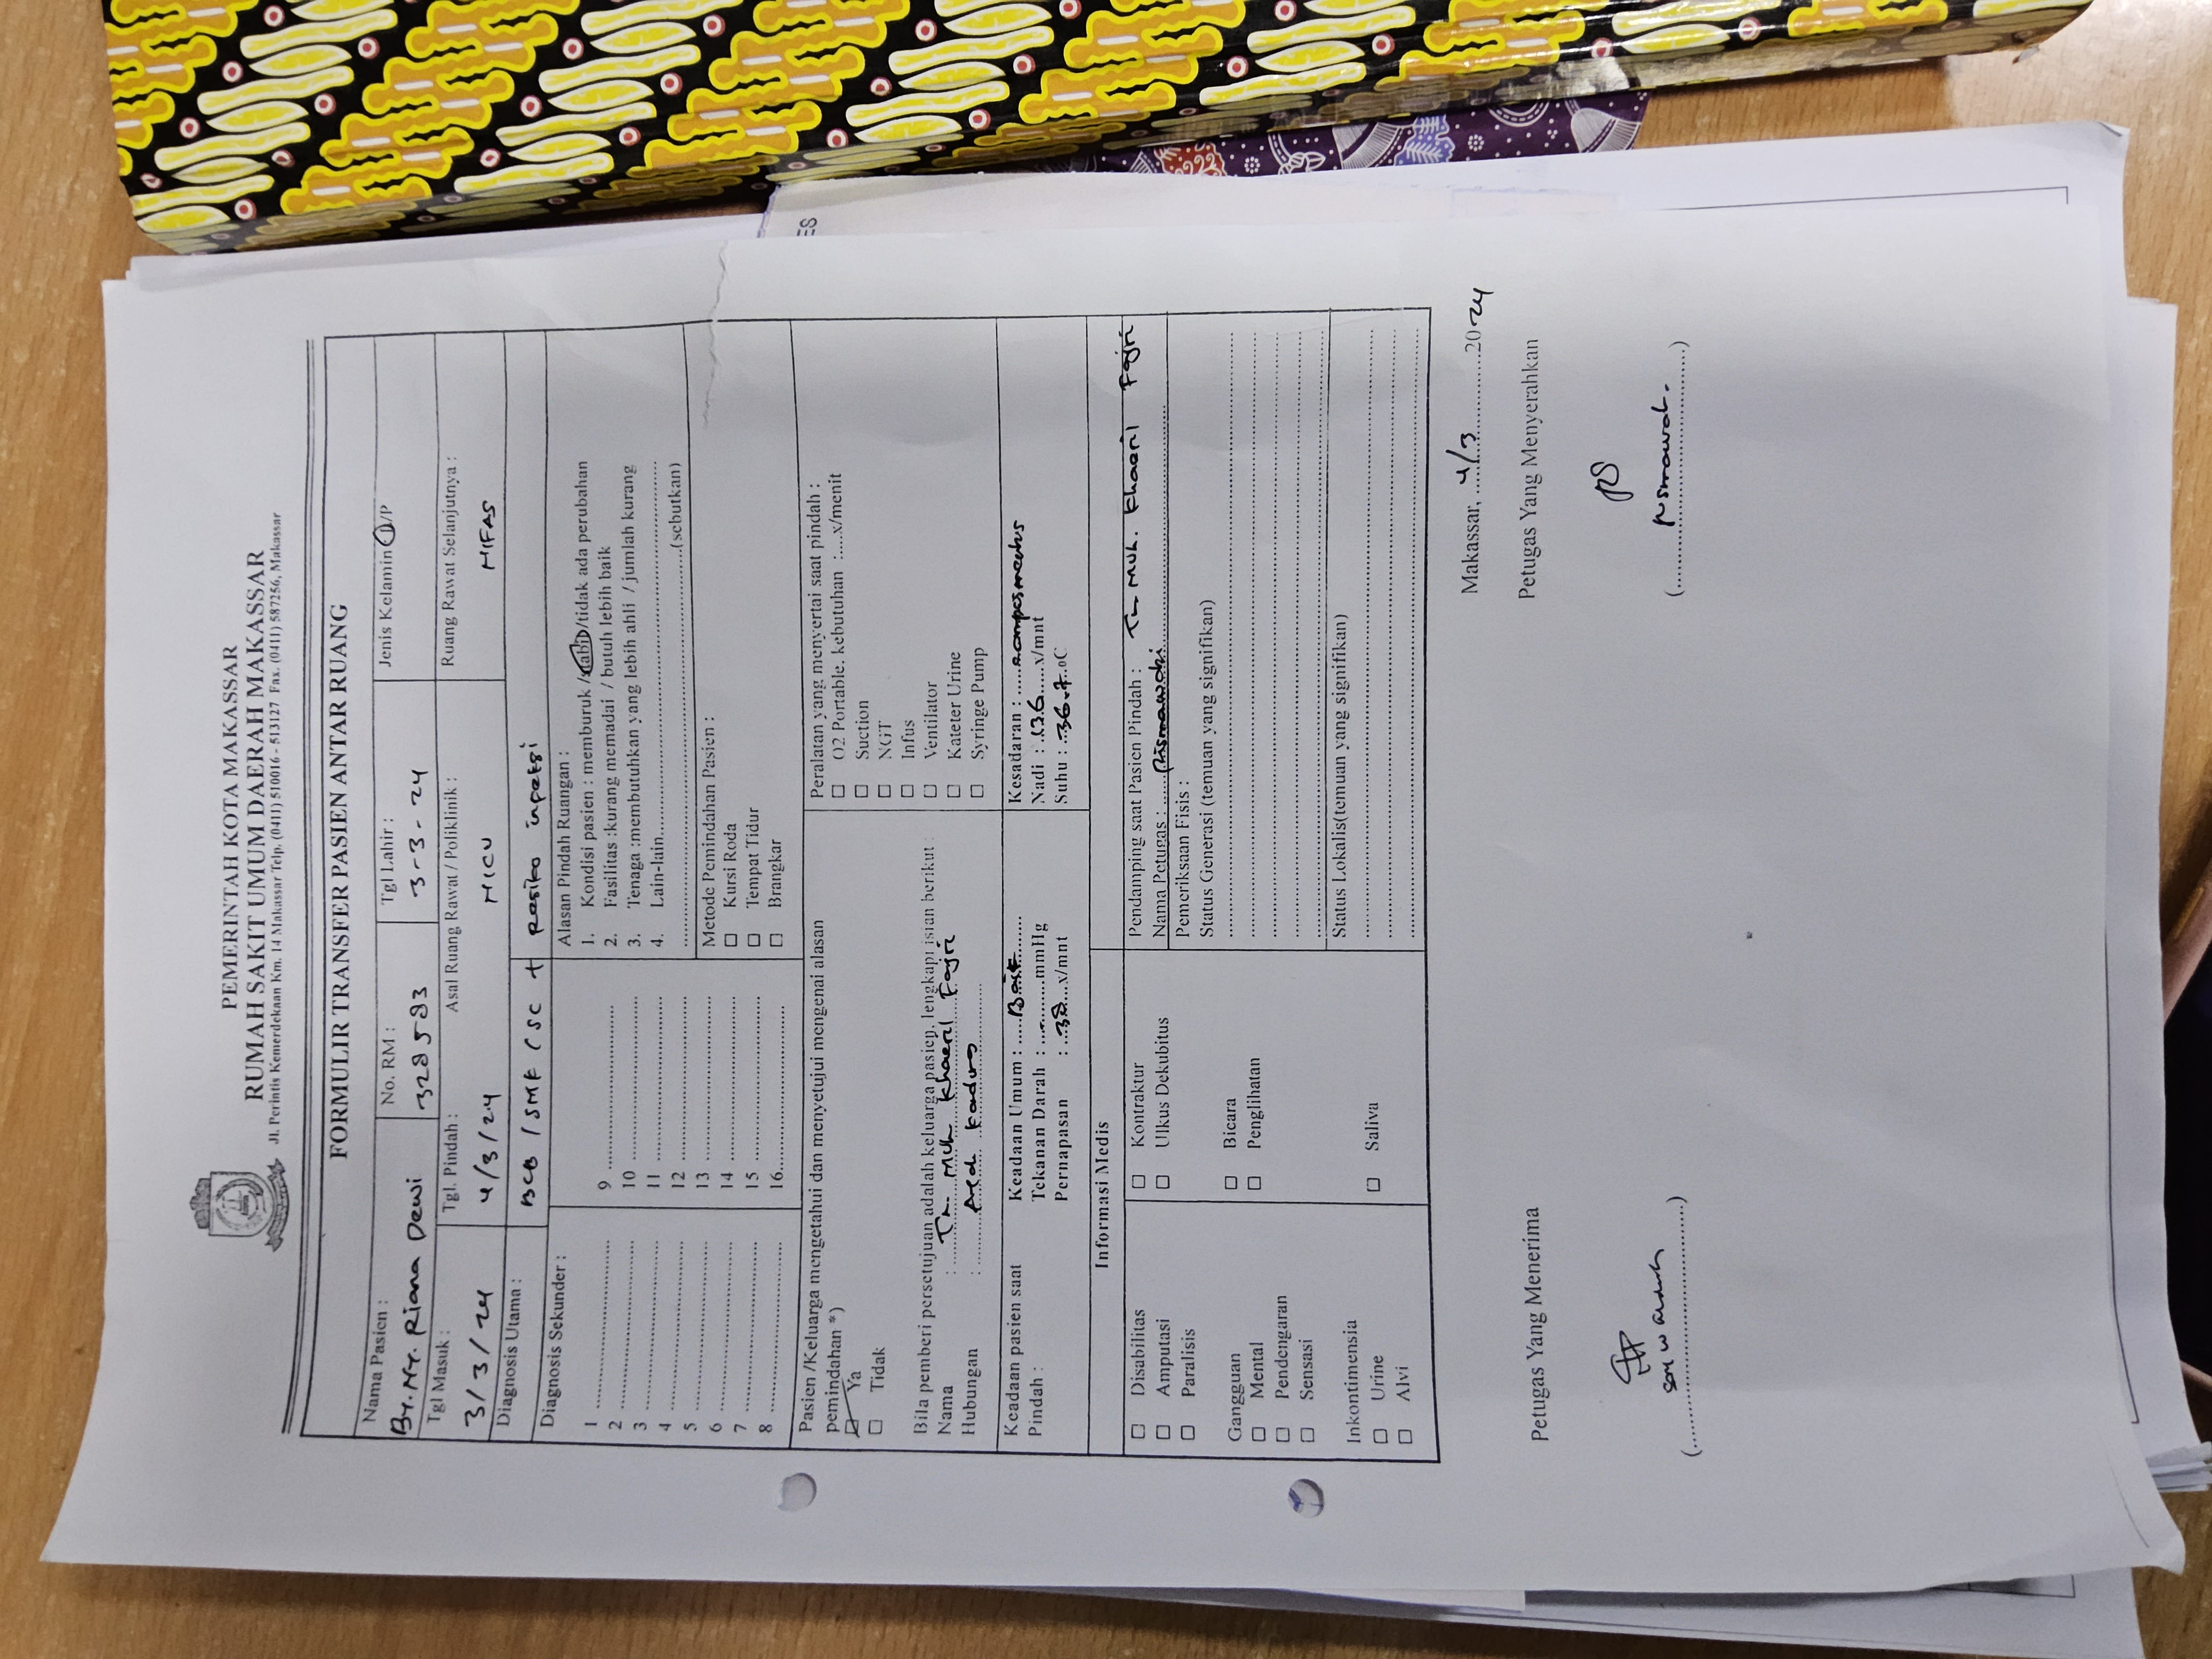 PEMERINTAH KOTA MAKASSAR
RUMAH SAKIT UMUM DAERAH MAKASSAR
Jl. Perintis Kemerdekaan Km. 14 Makassar Telp. (0411) 510016 - 513127 Fax. (0411) 587256, Makassar
FORMULIR TRANSFER PASIEN ANTAR RUANG
Nama Pasien : No. RM : Tgl Lahir : Jenis Kelamin L/P
By. Ny. Riana Dewi 328593 3-3-24
Tgl Masuk : Tgl. Pindah : Asal Ruang Rawat / Poliklinik : Ruang Rawat Selanjutnya :
3/3/24 4/3/24 NICU NIFAS
Diagnosis Utama : BCB / SMK / SC + Resiko inpeksi
Diagnosis Sekunder :
1
2
3
4
5
6
7
8
9
10
11
12
13
14
15
16
Alasan Pindah Ruangan :
1. Kondisi pasien : memburuk / stabil/tidak ada perubahan
2. Fasilitas :kurang memadai / butuh lebih baik
3. Tenaga :membutuhkan yang lebih ahli / jumlah kurang
4. Lain-lain
(sebutkan)
Metode Pemindahan Pasien :
☐ Kursi Roda
☐ Tempat Tidur
☐ Brangkar
Pasien /Keluarga mengetahui dan menyetujui mengenai alasan
pemindahan *)
☑ Ya
☐ Tidak
Bila pemberi persetujuan adalah keluarga pasien, lengkapi isian berikut :
Nama : Tn. Muh Khaeril Fajri
Hubungan :
Peralatan yang menyertai saat pindah :
☐ O2 Portable, kebutuhan :....x/menit
☐ Suction
☐ NGT
☐ Infus
☐ Ventilator
☐ Kateter Urine
☐ Syringe Pump
Keadaan pasien saat
Pindah :
Keadaan Umum : Baik
Tekanan Darah : - mmHg
Pernapasan : 38 x/mnt
Kesadaran : composmentis
Nadi : 136 x/mnt
Suhu : 36.7 oC
Informasi Medis
☐ Disabilitas
☐ Amputasi
☐ Paralisis
☐ Kontraktur
☐ Ulkus Dekubitus
Gangguan
☐ Mental
☐ Pendengaran
☐ Sensasi
☐ Bicara
☐ Penglihatan
Inkontimensia
☐ Urine
☐ Alvi
☐ Saliva
Pendamping saat Pasien Pindah : Tn Muh. Khaeril Fajri
Nama Petugas : Rismawati
Pemeriksaan Fisis :
Status Generasi (temuan yang signifikan)
Status Lokalis(temuan yang signifikan)
Makassar, 4/3 2024
Petugas Yang Menerima Petugas Yang Menyerahkan
(....................) (....................)
ES